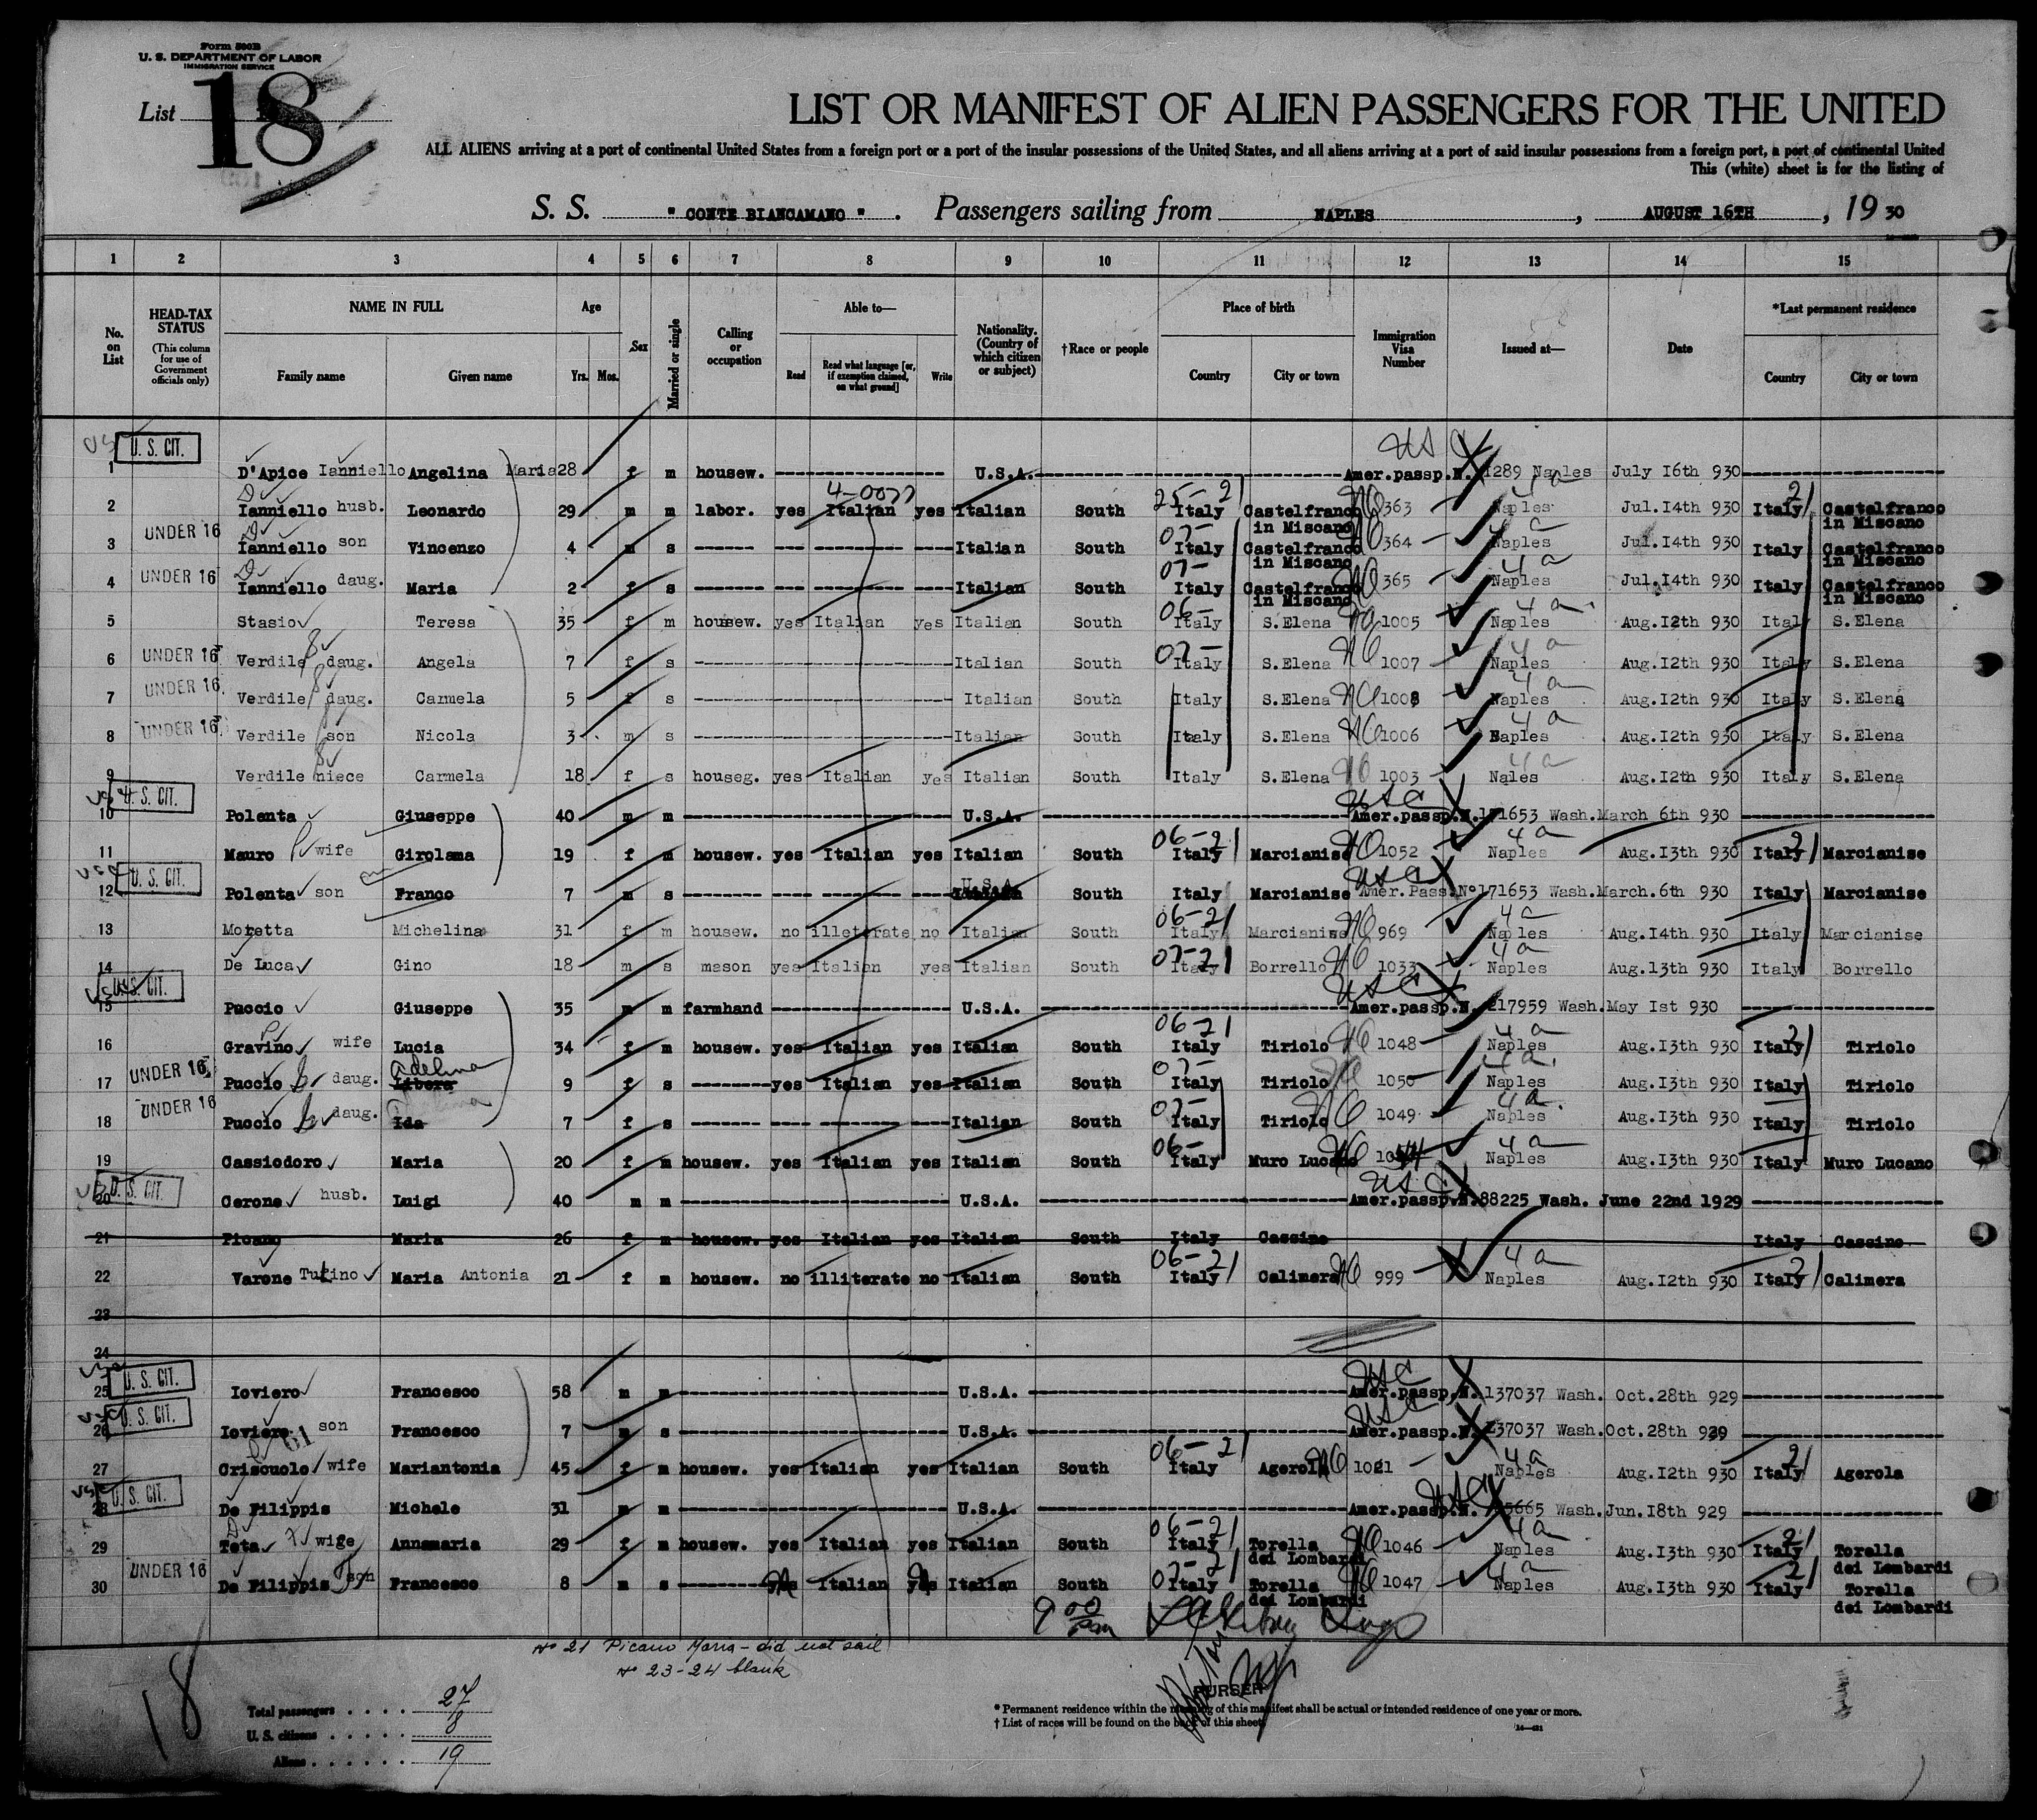 Form 500B
U. S. DEPARTMENT OF LABOR
IMMIGRATION SERVICE
List 18
LIST OR MANIFEST OF ALIEN PASSENGERS FOR THE UNITED
ALL ALIENS arriving at a port of continental United States from a foreign port or a port of the insular possessions of the United States, and all aliens arriving at a port of said insular possessions from a foreign port, a port of continental United
This (white) sheet is for the listing of
S. S. " CONTE BIANCAMANO " . Passengers sailing from NAPLES , AUGUST 16TH , 19 30
1 2 3 4 5 6 7 8 9 10 11 12 13 14 15
No. on List HEAD-TAX STATUS (This column for use of Government officials only) NAME IN FULL Family name Given name Age Yrs. Mos. Sex Married or single Calling or occupation Able to— Read Read what language [or, if exemption claimed, on what ground] Write Nationality. (Country of which citizen or subject) †Race or people Place of birth Country City or town Immigration Visa Number Issued at— Date *Last permanent residence Country City or town
U. S. CIT.
1 D'Apice Ianniello Angelina Maria 28 f m housew. U.S.A. USC Amer.passp.N. 1289 Naples July 16th 930
2 Ianniello husb. Leonardo 29 m m labor. yes Italian yes Italian South Italy Castelfranco in Miscano 363 Naples 4a Jul.14th 930 Italy Castelfranco in Miscano
3 UNDER 16 Ianniello son Vincenzo 4 m s Italian South Italy Castelfranco in Miscano 364 Naples 4a Jul.14th 930 Italy Castelfranco in Miscano
4 UNDER 16 Ianniello daug. Maria 2 f s Italian South Italy Castelfranco in Miscano 365 Naples 4a Jul.14th 930 Italy Castelfranco in Miscano
5 Stasio Teresa 35 f m housew. yes Italian yes Italian South Italy S.Elena 1005 Naples 4a Aug.12th 930 Italy S.Elena
6 UNDER 16 Verdile daug. Angela 7 f s Italian South Italy S.Elena 1007 Naples 4a Aug.12th 930 Italy S.Elena
7 UNDER 16 Verdile daug. Carmela 5 f s Italian South Italy S.Elena 1008 Naples 4a Aug.12th 930 Italy S.Elena
8 UNDER 16 Verdile son Nicola 3 m s Italian South Italy S.Elena 1006 Naples 4a Aug.12th 930 Italy S.Elena
9 Verdile niece Carmela 18 f s houseg. yes Italian yes Italian South Italy S.Elena 1003 Nales 4a Aug.12th 930 Italy S.Elena
U. S. CIT.
10 Polenta Giuseppe 40 m m U.S.A. USC Amer.passp.N.171653 Wash.March 6th 930
11 Mauro wife Girolama 19 f m housew. yes Italian yes Italian South Italy Marcianise 1052 Naples 4a Aug.13th 930 Italy Marcianise
U. S. CIT.
12 Polenta son Franco 7 m s U.S.A. South Italy Marcianise USC Amer.Pass.No171653 Wash.March.6th 930 Italy Marcianise
13 Moretta Michelina 31 f m housew. no illeterate no Italian South Italy Marcianise 969 Naples 4a Aug.14th 930 Italy Marcianise
14 De Luca Gino 18 m s mason yes Italian yes Italian South Italy Borrello 1033 Naples 4a Aug.13th 930 Italy Borrello
U. S. CIT.
15 Puccio Giuseppe 35 m m farmhand U.S.A. USC Amer.passp.N. 217959 Wash.May 1st 930
16 Gravino wife Lucia 34 f m housew. yes Italian yes Italian South Italy Tiriolo 1048 Naples 4a Aug.13th 930 Italy Tiriolo
17 UNDER 16 Puccio daug. Adelina Libera 9 f s yes Italian yes Italian South Italy Tiriolo 1050 Naples 4a Aug.13th 930 Italy Tiriolo
18 UNDER 16 Puccio daug. Ida 7 f s Italian South Italy Tiriolo 1049 Naples 4a Aug.13th 930 Italy Tiriolo
19 Cassiodoro Maria 20 f m housew. yes Italian yes Italian South Italy Muro Lucano Naples 4a Aug.13th 930 Italy Muro Lucano
U. S. CIT.
20 Cerone husb. Luigi 40 m m U.S.A. USC Amer.passp.N.88225 Wash. June 22nd 1929
21 Picano Maria 26 f m housew. yes Italian yes Italian South Italy Cassino Italy Cassino
22 Varone Tutino Maria Antonia 21 f m housew. no illiterate no Italian South Italy Calimera 999 Naples 4a Aug.12th 930 Italy Calimera
23
24
U. S. CIT.
25 Ioviero Francesco 58 m m U.S.A. USC Amer.passp.N. 137037 Wash. Oct.28th 929
U. S. CIT.
26 Ioviero son Francesco 7 m s U.S.A. USC Amer.passp.N. 137037 Wash.Oct.28th 929
27 Criscuolo wife Mariantonia 45 f m housew. yes Italian yes Italian South Italy Agerola 1021 Naples 4a Aug.12th 930 Italy Agerola
U. S. CIT.
28 De Filippis Michele 31 m m U.S.A. USC Amer.passp.N. Wash.Jun.18th 929
29 Teta wige Annamaria 29 f m housew. yes Italian yes Italian South Italy Torella dei Lombardi 1046 Naples 4a Aug.13th 930 Italy Torella dei Lombardi
30 UNDER 16 De Filippis son Francesco 8 m s Italian Italian South Italy Torella dei Lombardi 1047 Naples 4a Aug.13th 930 Italy Torella dei Lombardi
9 00 Pm
No 21 Picano Maria - did not sail
No 23-24 blank
18
PURSER
Total passengers . . . . 27
U. S. citizens . . . . . 8
Aliens . . . . . . 19
* Permanent residence within the meaning of this manifest shall be actual or intended residence of one year or more.
† List of races will be found on the back of this sheet.